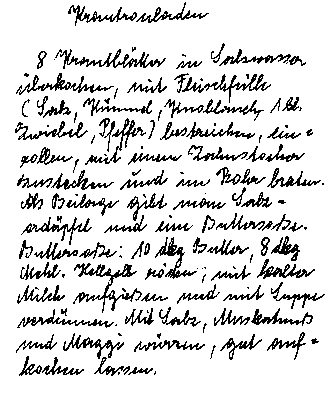 Krautrouladen
8 Krautblätter in Salzwasser
überkochen, mit Fleischfülle
(Salz, Kümmel, Knoblauch, 1 kl.
Zwiebel, Pfeffer) bestreichen, ein=
rollen, mit einem Zahnstocher
zustecken und im Rohr braten.
Als Beilage gibt man Salz=
erdäpfel und eine Buttersoße.
Buttersoße: 10 dkg Butter, 8 dkg
Mehl. Hellgelb rösten; mit kalter
Milch aufgießen und mit Suppe
verdünnen. Mit Salz, Muskatnuß
und Maggi würzen, gut auf=
kochen lassen.